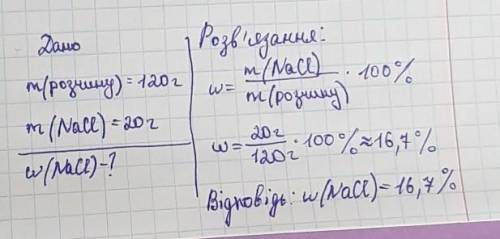 Дано
m(розчину) = 120г
m(NaCl) = 20г
w(NaCl) - ?
Розв'язання:
w = m(NaCl) / m(розчину) · 100%
w = 20г / 120г · 100% ≈ 16,7%
Відповідь: w(NaCl) = 16,7%